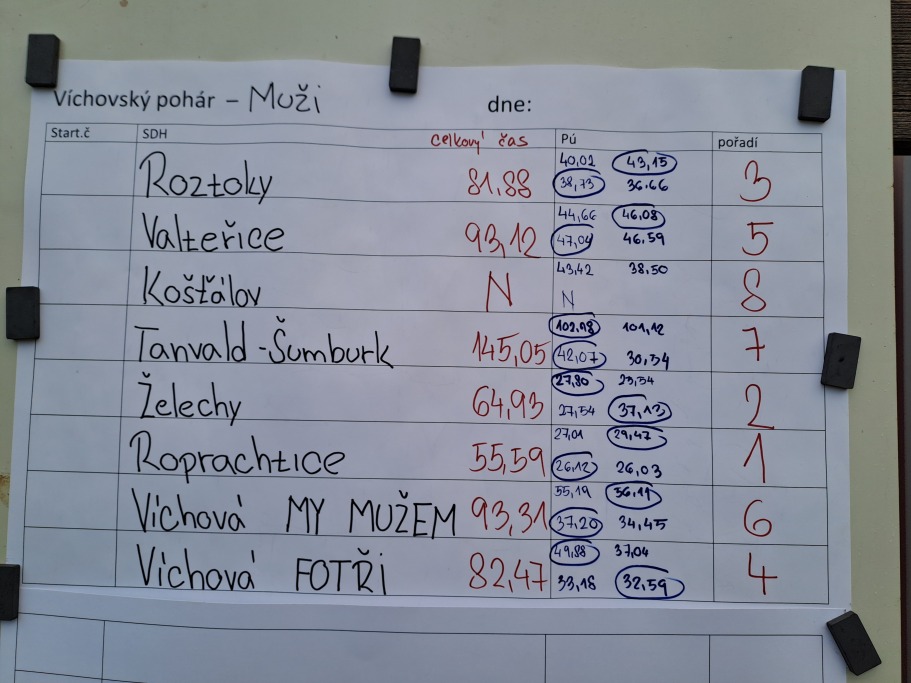 Víchovský pohár – Muži dne:
Start.č SDH celkový čas Pú pořadí
40,02 43,15
Roztoky 81,88 38,73 36.66 3
44,66 46,08
Valteřice 93,12 47,04 46,59 5
43,42 38,50
Košťálov N N 8
102,98 101,12
Tanvald-Šumburk 145,05 42,07 30,54 7
27,80 23,54
Želechy 64,93 27,54 37,13 2
27,01 29,47
Roprachtice 55,59 26,12 26,03 1
55,19 56,11
Víchová MY MUŽEM 93,31 37,20 34,45 6
49,88 37,04
Víchová FOTŘi 82,47 33,18 32,59 4